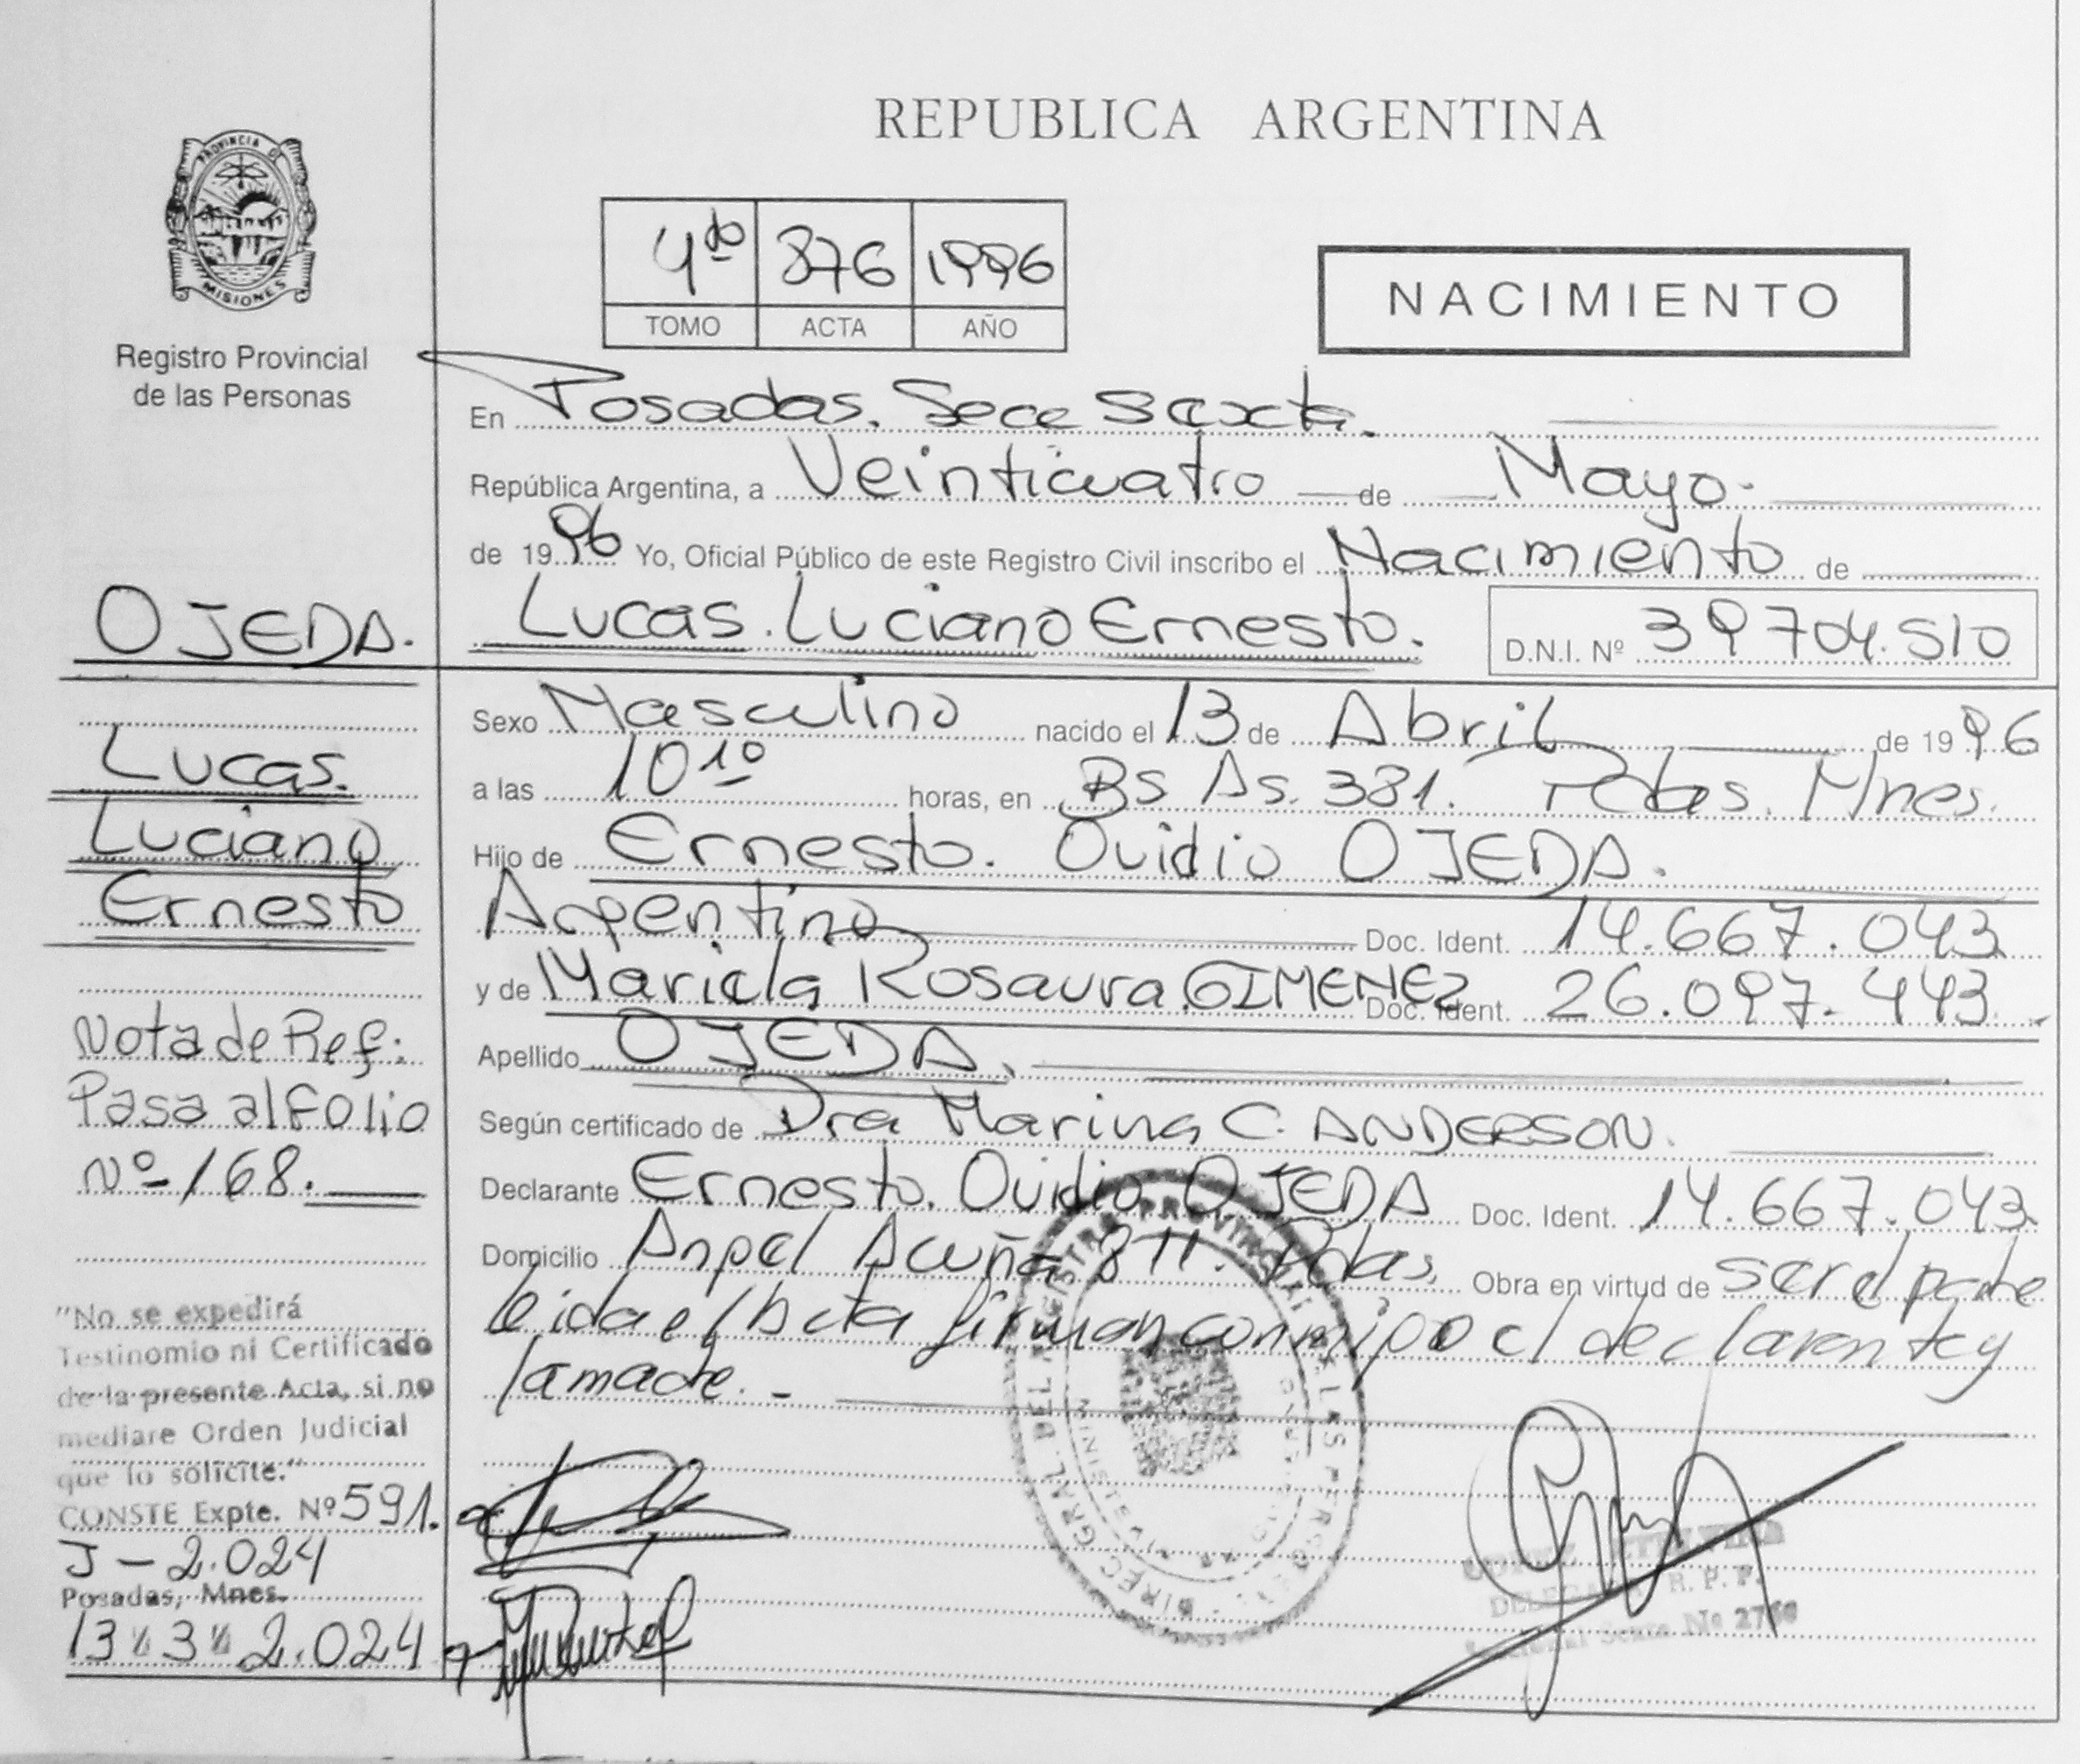 REPUBLICA ARGENTINA
PROVINCIA DE
MISIONES
Registro Provincial
de las Personas
4to 876 1996
TOMO ACTA AÑO
NACIMIENTO
En Posadas. Secc Sexta.
República Argentina, a Veinticuatro de Mayo.
de 1996 Yo, Oficial Público de este Registro Civil inscribo el Nacimiento de
Lucas. Luciano Ernesto.
D.N.I. Nº 39704.510
Sexo Masculino nacido el 13 de Abril de 1996
a las 10 10 horas, en Bs As. 381. Pdas. Mnes.
Hijo de Ernesto. Ovidio OJEDA.
Argentino Doc. Ident. 14.667.043
y de Mariela Rosaura GIMENEZ Doc. Ident. 26.097.443
Apellido OJEDA.
Según certificado de Dra Marina C. ANDERSON.
Declarante Ernesto. Ovidio OJEDA Doc. Ident. 14.667.043
Domicilio Angel Acuña 811. Pdas. Obra en virtud de ser el padre
leida el Acta firman conmigo el declarante y
la madre. -
OJEDA.
Lucas.
Luciano
Ernesto
Nota de Ref:
Pasa al Folio
Nº-168.
"No se expedirá
Testinomio ni Certificado
de la presente Acta, si no
mediare Orden Judicial
que lo solicite."
CONSTE Expte. Nº 591.
J - 2.024
Posadas, Mnes.
13 " 3 " 2.024
DIREC. GRAL. DEL REGISTRO PROVINCIAL DE LAS PERSONAS
MISIONES
DELEGADA R. P. P.
Seccional Sexta Nº